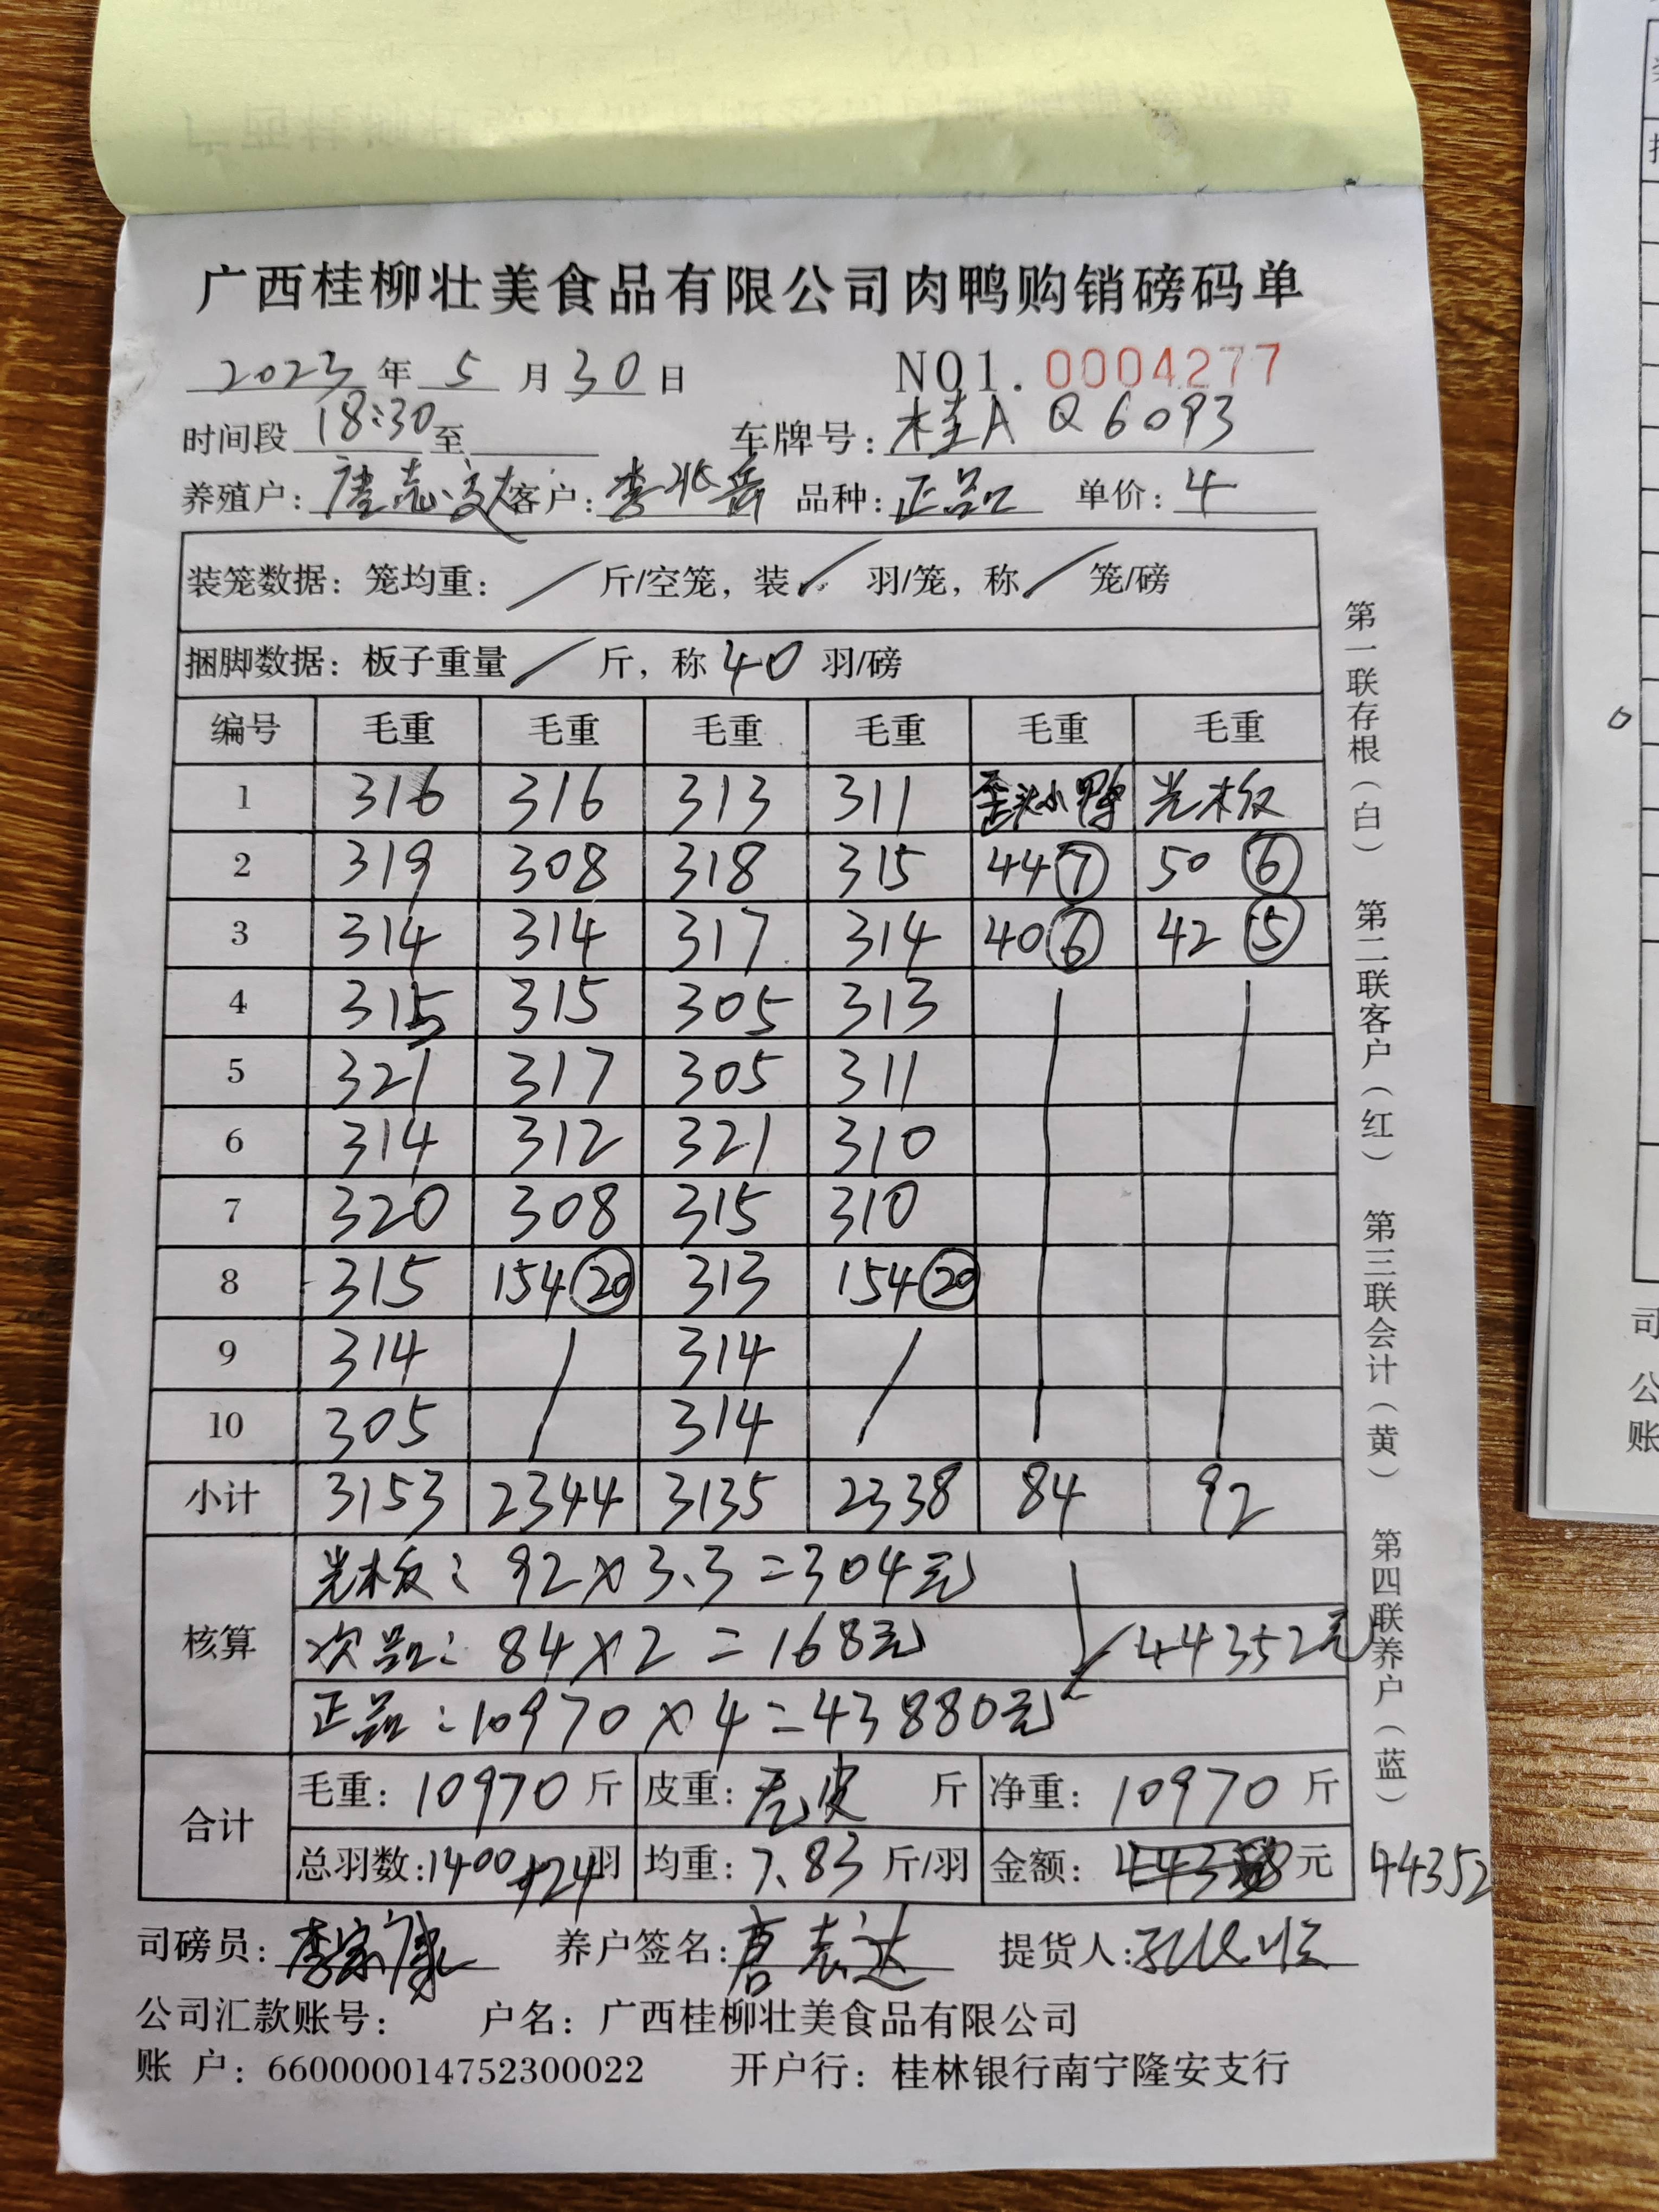 广西桂柳壮美食品有限公司肉鸭购销磅码单
2023 年 5 月 30 日 NO1. 0004277
时间段 18:30 至 车牌号: 桂A Q6093
养殖户: 客户: 李兆岳 品种: 正品 单价: 4
装笼数据: 笼均重: / 斤/空笼, 装 / 羽/笼, 称 / 笼/磅
捆脚数据: 板子重量 / 斤, 称 40 羽/磅
编号 毛重 毛重 毛重 毛重 毛重 毛重
1 316 316 313 311 歪头小鸭 光木板
2 319 308 318 315 44⑦ 50 ⑥
3 314 314 317 314 40⑥ 42 ⑤
4 315 315 305 313
5 321 317 305 311
6 314 312 321 310
7 320 308 315 310
8 315 154⑳ 313 154⑳
9 314 / 314 /
10 305 / 314 /
小计 3153 2344 3135 2338 84 92
核算 光木板: 92×3.3=304元
次品: 84×2=168元 44352元
正品: 10970×4=43880元
合计 毛重: 10970 斤 皮重: 无皮 斤 净重: 10970 斤
总羽数: 1400+24 羽 均重: 7.83 斤/羽 金额: 元 44352
司磅员: 李家康 养户签名: 提货人:
公司汇款账号: 户名: 广西桂柳壮美食品有限公司
账 户: 660000014752300022 开户行: 桂林银行南宁隆安支行
第一联存根(白) 第二联客户(红) 第三联会计(黄) 第四联养户(蓝)
司
公
账